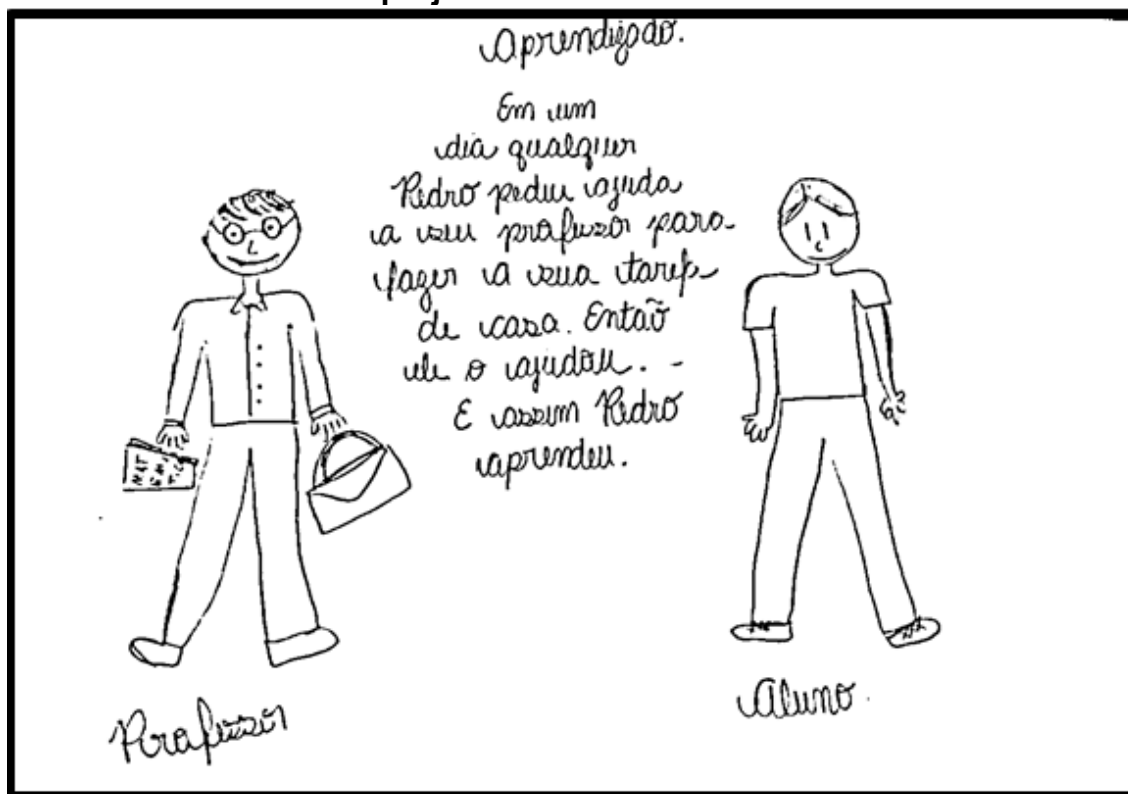 Aprendizado.
Em um
dia qualquer
Pedro pediu ajuda
a seu professor para
fazer a sua taref
de casa. Então
ele o ajudou. -
E assim Pedro
aprendeu.
MAT
EMA
TIC
Professor
Aluno.